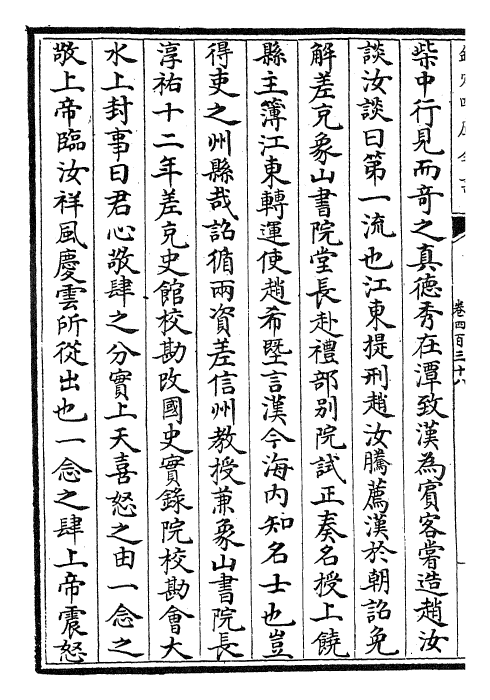 欽定四庫全書
卷四百三十八
柴中行見而竒之真德秀在潭致漢為賓客嘗造趙汝
談汝談曰第一流也江東提刑趙汝騰薦漢於朝詔免
解差充象山書院堂長赴禮部别院試正奏名授上饒
縣主簿江東轉運使趙希塈言漢今海内知名士也豈
得吏之州縣哉詔循兩資差信州教授兼象山書院長
淳祐十二年差充史館校勘改國史實錄院校勘會大
水上封事曰君心敬肆之分實上天喜怒之由一念之
敬上帝臨汝祥風慶雲所從出也一念之肆上帝震怒